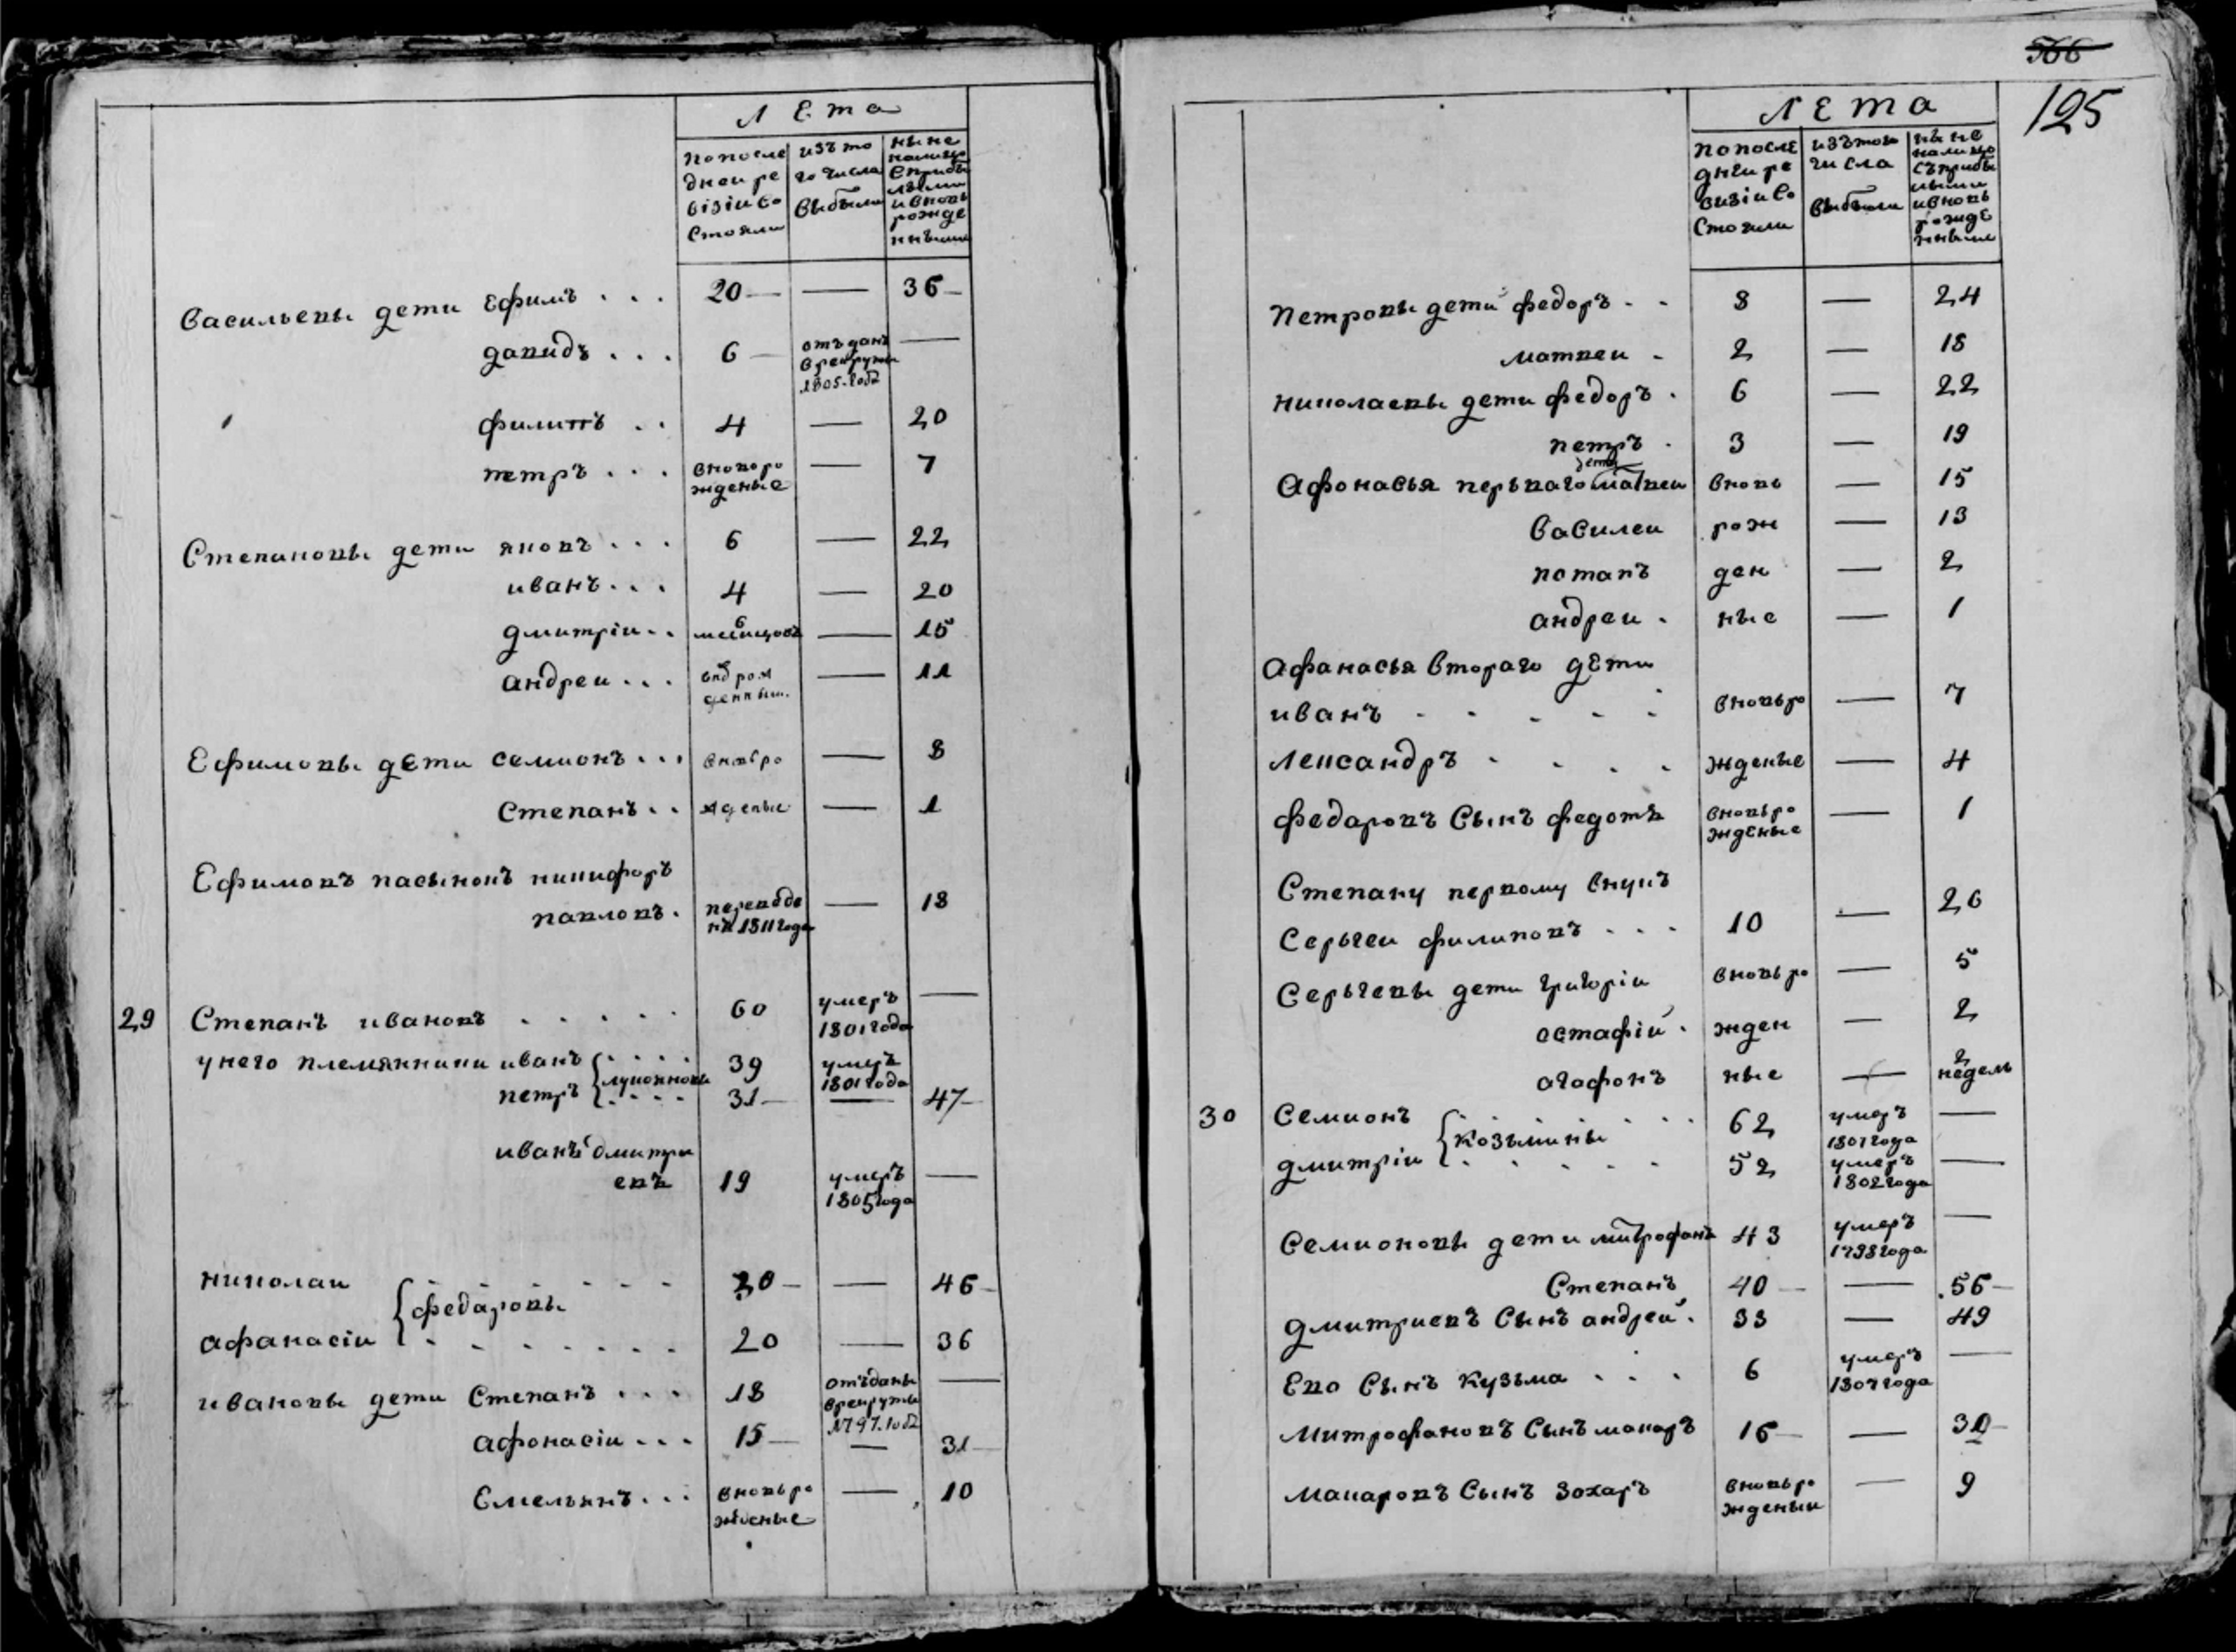 Лета
По после
днеи ре
візіи со
стояли
изъ то
го числа
выбыли
ныне
налицо
с прибы
лыми
и вновь
рожде
нными
Васильевы дети Ефимъ . . . 20 — — 36
давидъ . . . 6 — отъданъ в рекруты 1805. года —
филиппъ . . 4 — 20
петръ . . . вновь рожденые — 7
Степановы дети яковъ . . . 6 — 22
иванъ . . . 4 — 20
дмитріи . . 6 месицовъ — 15
андреи . . . — 11
Ефимовы дети семионъ . . . вновь ро — 8
Степанъ . . жденые — 1
Ефимовъ пасынокъ никифоръ
павловъ . 1811 года — 18
29 Степанъ ивановъ . . . . . 60 умеръ 1801 года —
у него племянники иванъ . . . . 39 умеръ 1801 года
петръ . . . . 31 — — 47
иванъ дмитри
евъ 19 умеръ 1805 года —
николаи . . . . . . 30 — — 46
федаровы
афанасіи . . . . . . . 20 — 36
ивановы дети Степанъ . . . 18 отъданы в рекруты 1797. года —
афонасіи . . . 15 — — 31
Емельянъ . . . вновь рожденые — 10
566
125
Лета
По после
днеи ре
визіи со
стояли
изъ того
числа
выбыли
ныне
налицо
съ прибы
лыми
и вновь
рожде
нными
Петровы дети федоръ . . 8 — 24
матвеи . 2 — 18
николаевы дети федоръ . 6 — 22
петръ . 3 — 19
Афонасья перваго дети матвеи вновь — 15
василеи рож — 13
потапъ ден — 2
андреи . ные — 1
Афанасья втораго дети
иванъ . . . . . вновь ро — 7
лександръ . . . . жденые — 4
федаровъ сынъ федотъ вновь рожденые — 1
Степану первому внукъ
Серьгеи филиповъ . . . 10 — 26
Серьгевы дети григоріи вновь ро — 5
естафіи . жден — 2
агафонъ ные — 2 недель
30 Семионъ . . . . . 62 умеръ 1807 года —
козьмины
дмитріи . . . . . 52 умеръ 1802 года —
Семионовы дети митрофанъ 43 умеръ 1798 года —
Степанъ 40 — — 56
дмитриевъ сынъ андреи . 33 — 49
Ево сынъ кузьма . . . 6 умеръ 1807 года —
митрофановъ сынъ макаръ 16 — —
макаровъ сынъ захаръ вновь рожденыи — 9